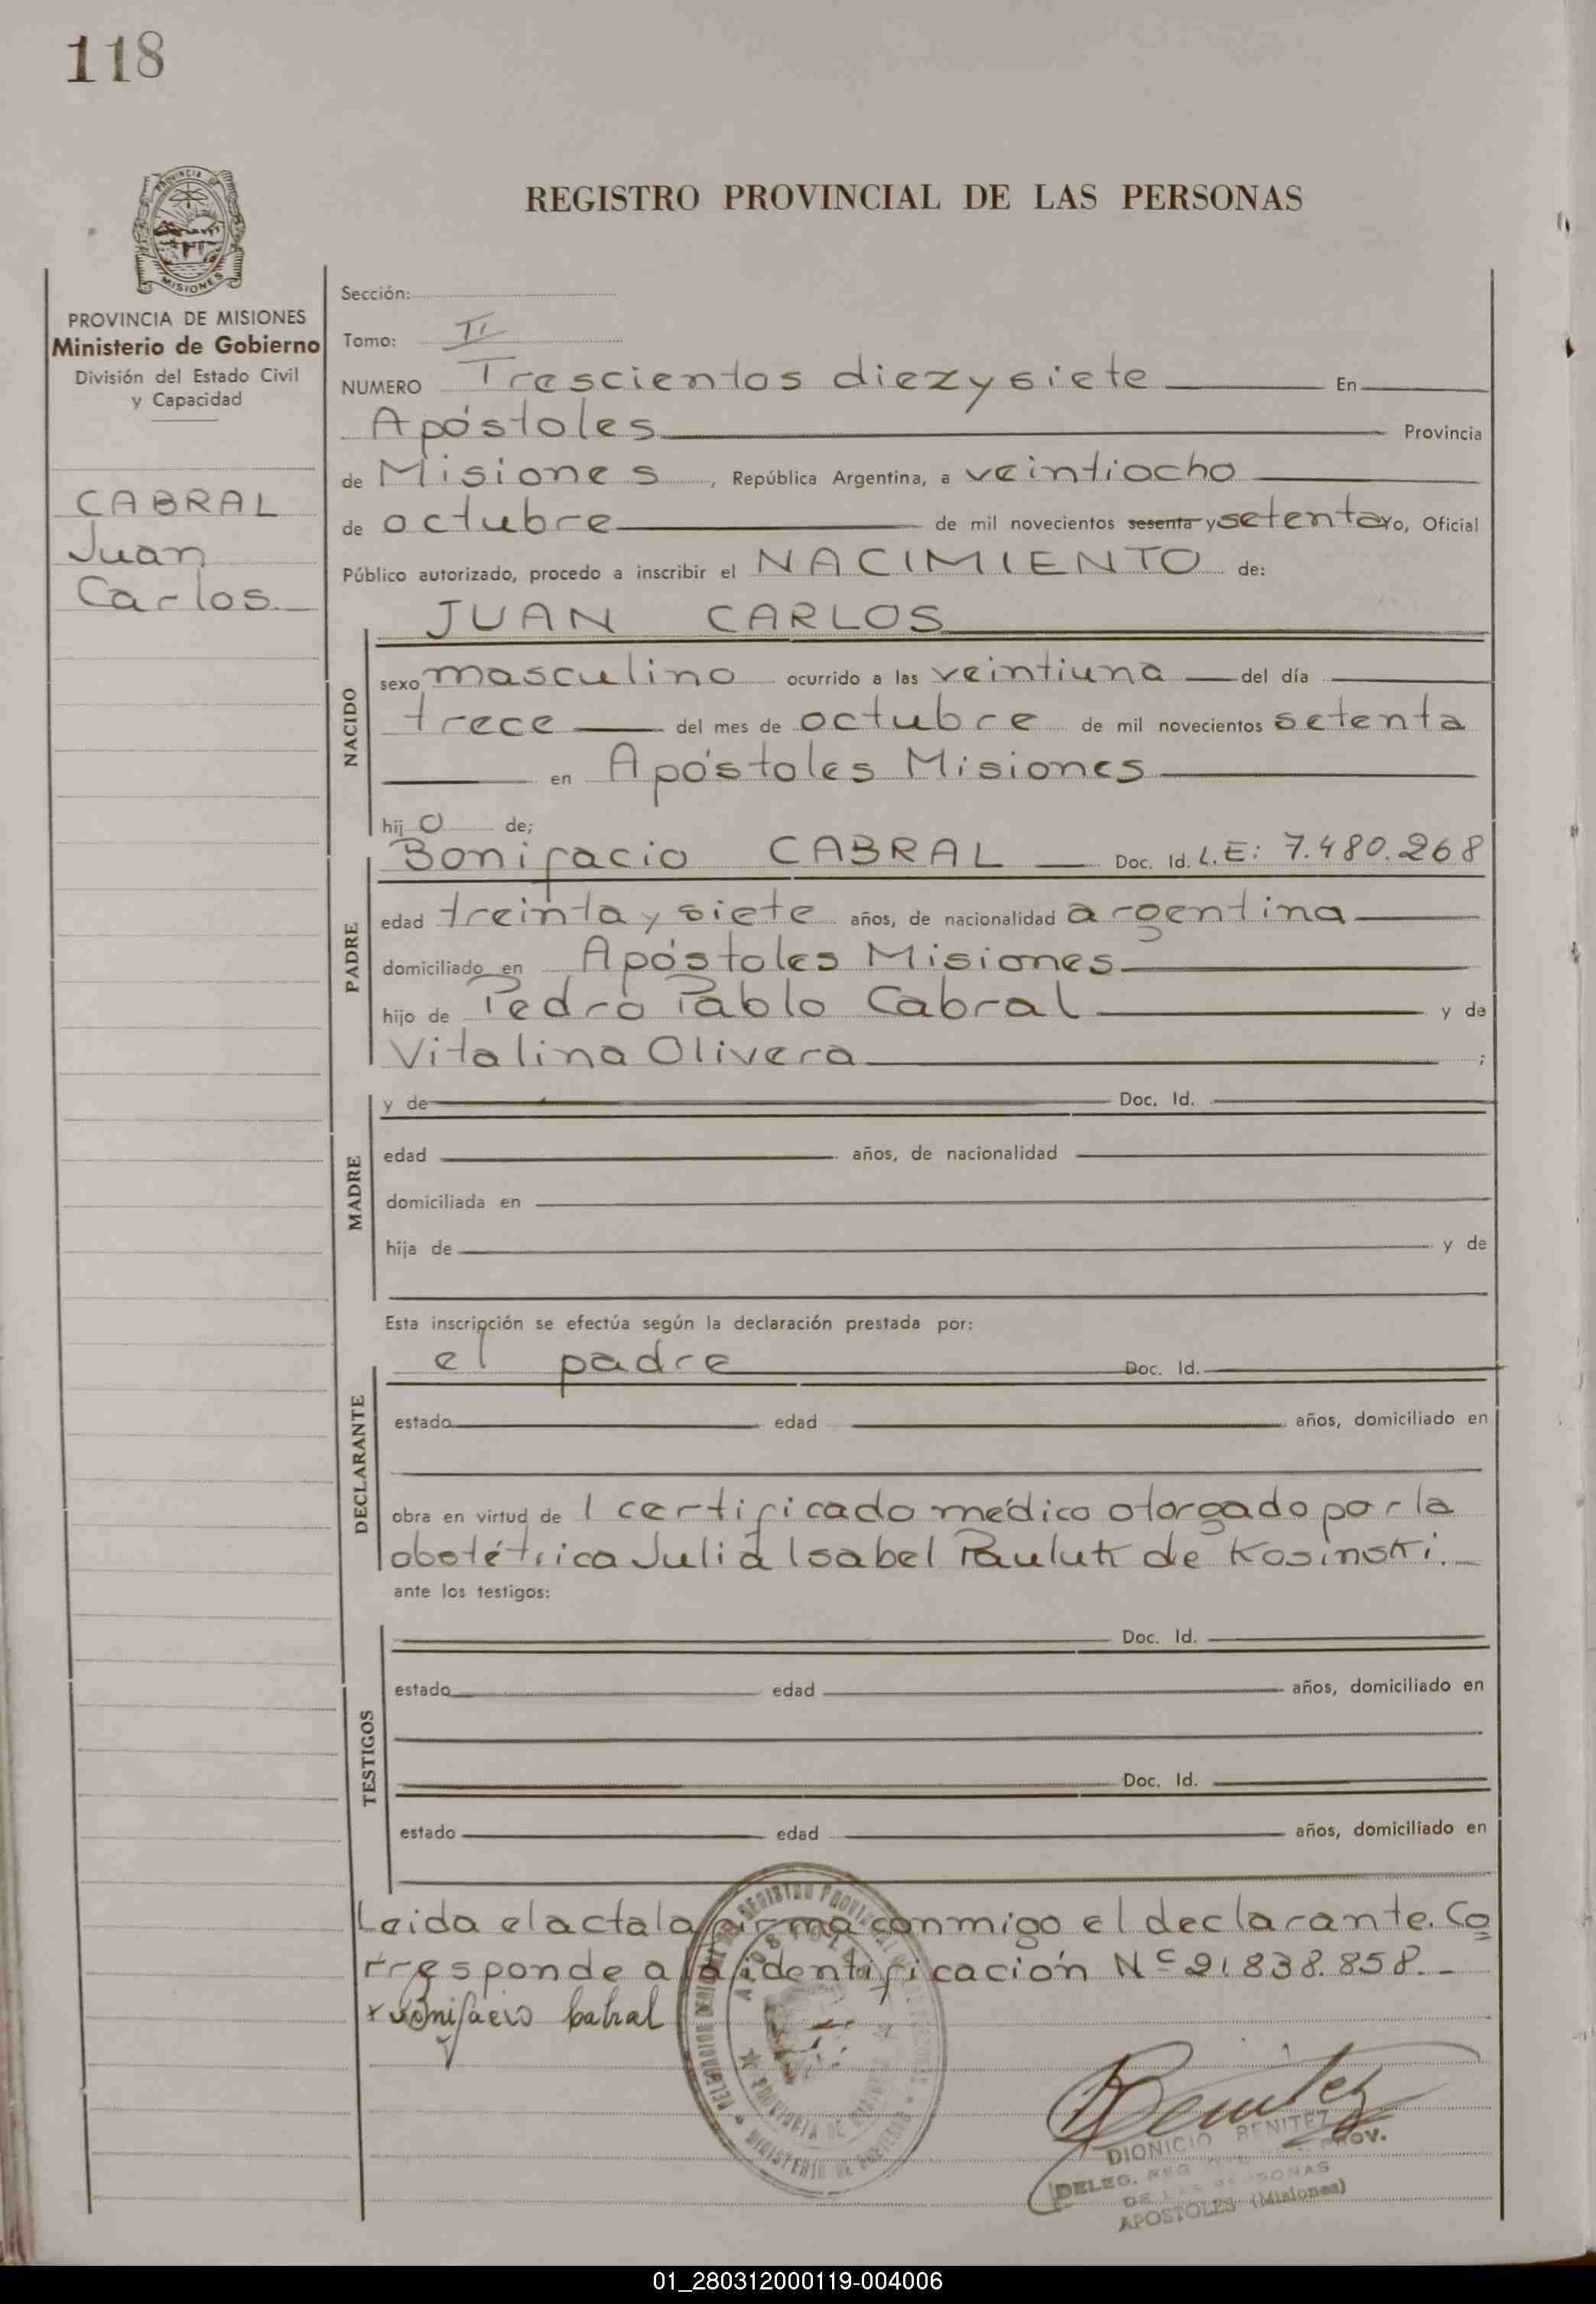 118
PROVINCIA DE
MISIONES
REGISTRO PROVINCIAL DE LAS PERSONAS
PROVINCIA DE MISIONES
Ministerio de Gobierno
División del Estado Civil
y Capacidad
CABRAL
Juan
Carlos
Sección:
Tomo: II
NUMERO Trescientos diez y siete En
Apóstoles Provincia
de Misiones, República Argentina, a veintiocho
de octubre de mil novecientos sesenta y setenta yo, Oficial
Público autorizado, procedo a inscribir el NACIMIENTO de:
NACIDO
JUAN CARLOS
sexo masculino ocurrido a las veintiuna del día
trece del mes de octubre de mil novecientos setenta
en Apóstoles Misiones
hijo de;
PADRE
Bonifacio CABRAL Doc. Id. L.E: 7.480.268
edad treinta y siete años, de nacionalidad argentina
domiciliado en Apóstoles Misiones
hijo de Pedro Pablo Cabral y de
Vitalina Olivera ;
MADRE
y de Doc. Id.
edad años, de nacionalidad
domiciliada en
hija de y de
Esta inscripción se efectúa según la declaración prestada por:
DECLARANTE
el padre Doc. Id.
estado edad años, domiciliado en
obra en virtud de 1 certificado médico otorgado por la
obstétrica Julia Isabel Pauluk de Kosinski.
ante los testigos:
TESTIGOS
Doc. Id.
estado edad años, domiciliado en
Doc. Id.
estado edad años, domiciliado en
Leida el acta la firma conmigo el declarante. Co
rresponde a la identificación Nº 21.838.858.-
x Bonifacio Cabral
APOSTOLES
PROVINCIA DE MISIONES
MINISTERIO DE GOBIERNO
Benitez
DIONICIO BENITEZ
DELEG. REG. PROV.
DE LAS PERSONAS
APOSTOLES (Misiones)
01_280312000119-004006